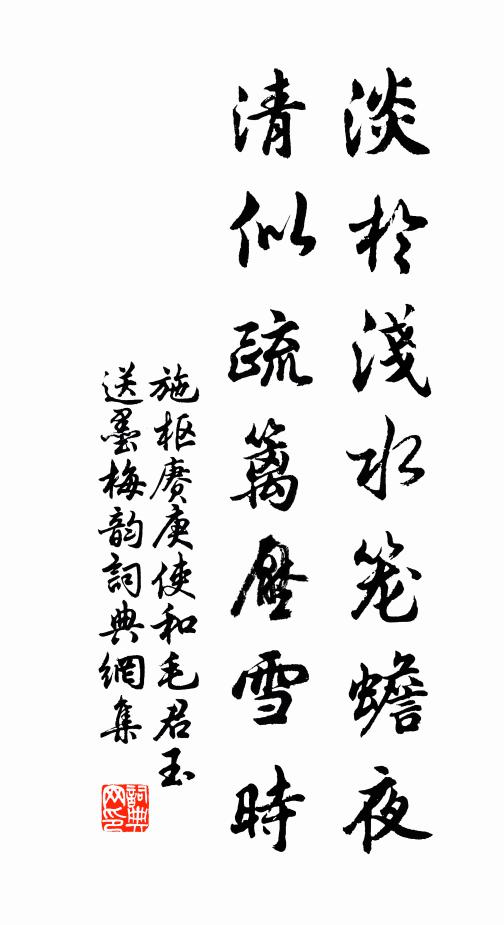 淡於淺水笼蟾夜
清似疏篱壓雪時
施枢赓庚使和毛君玉
送墨梅韵詞典網集
詞典网印